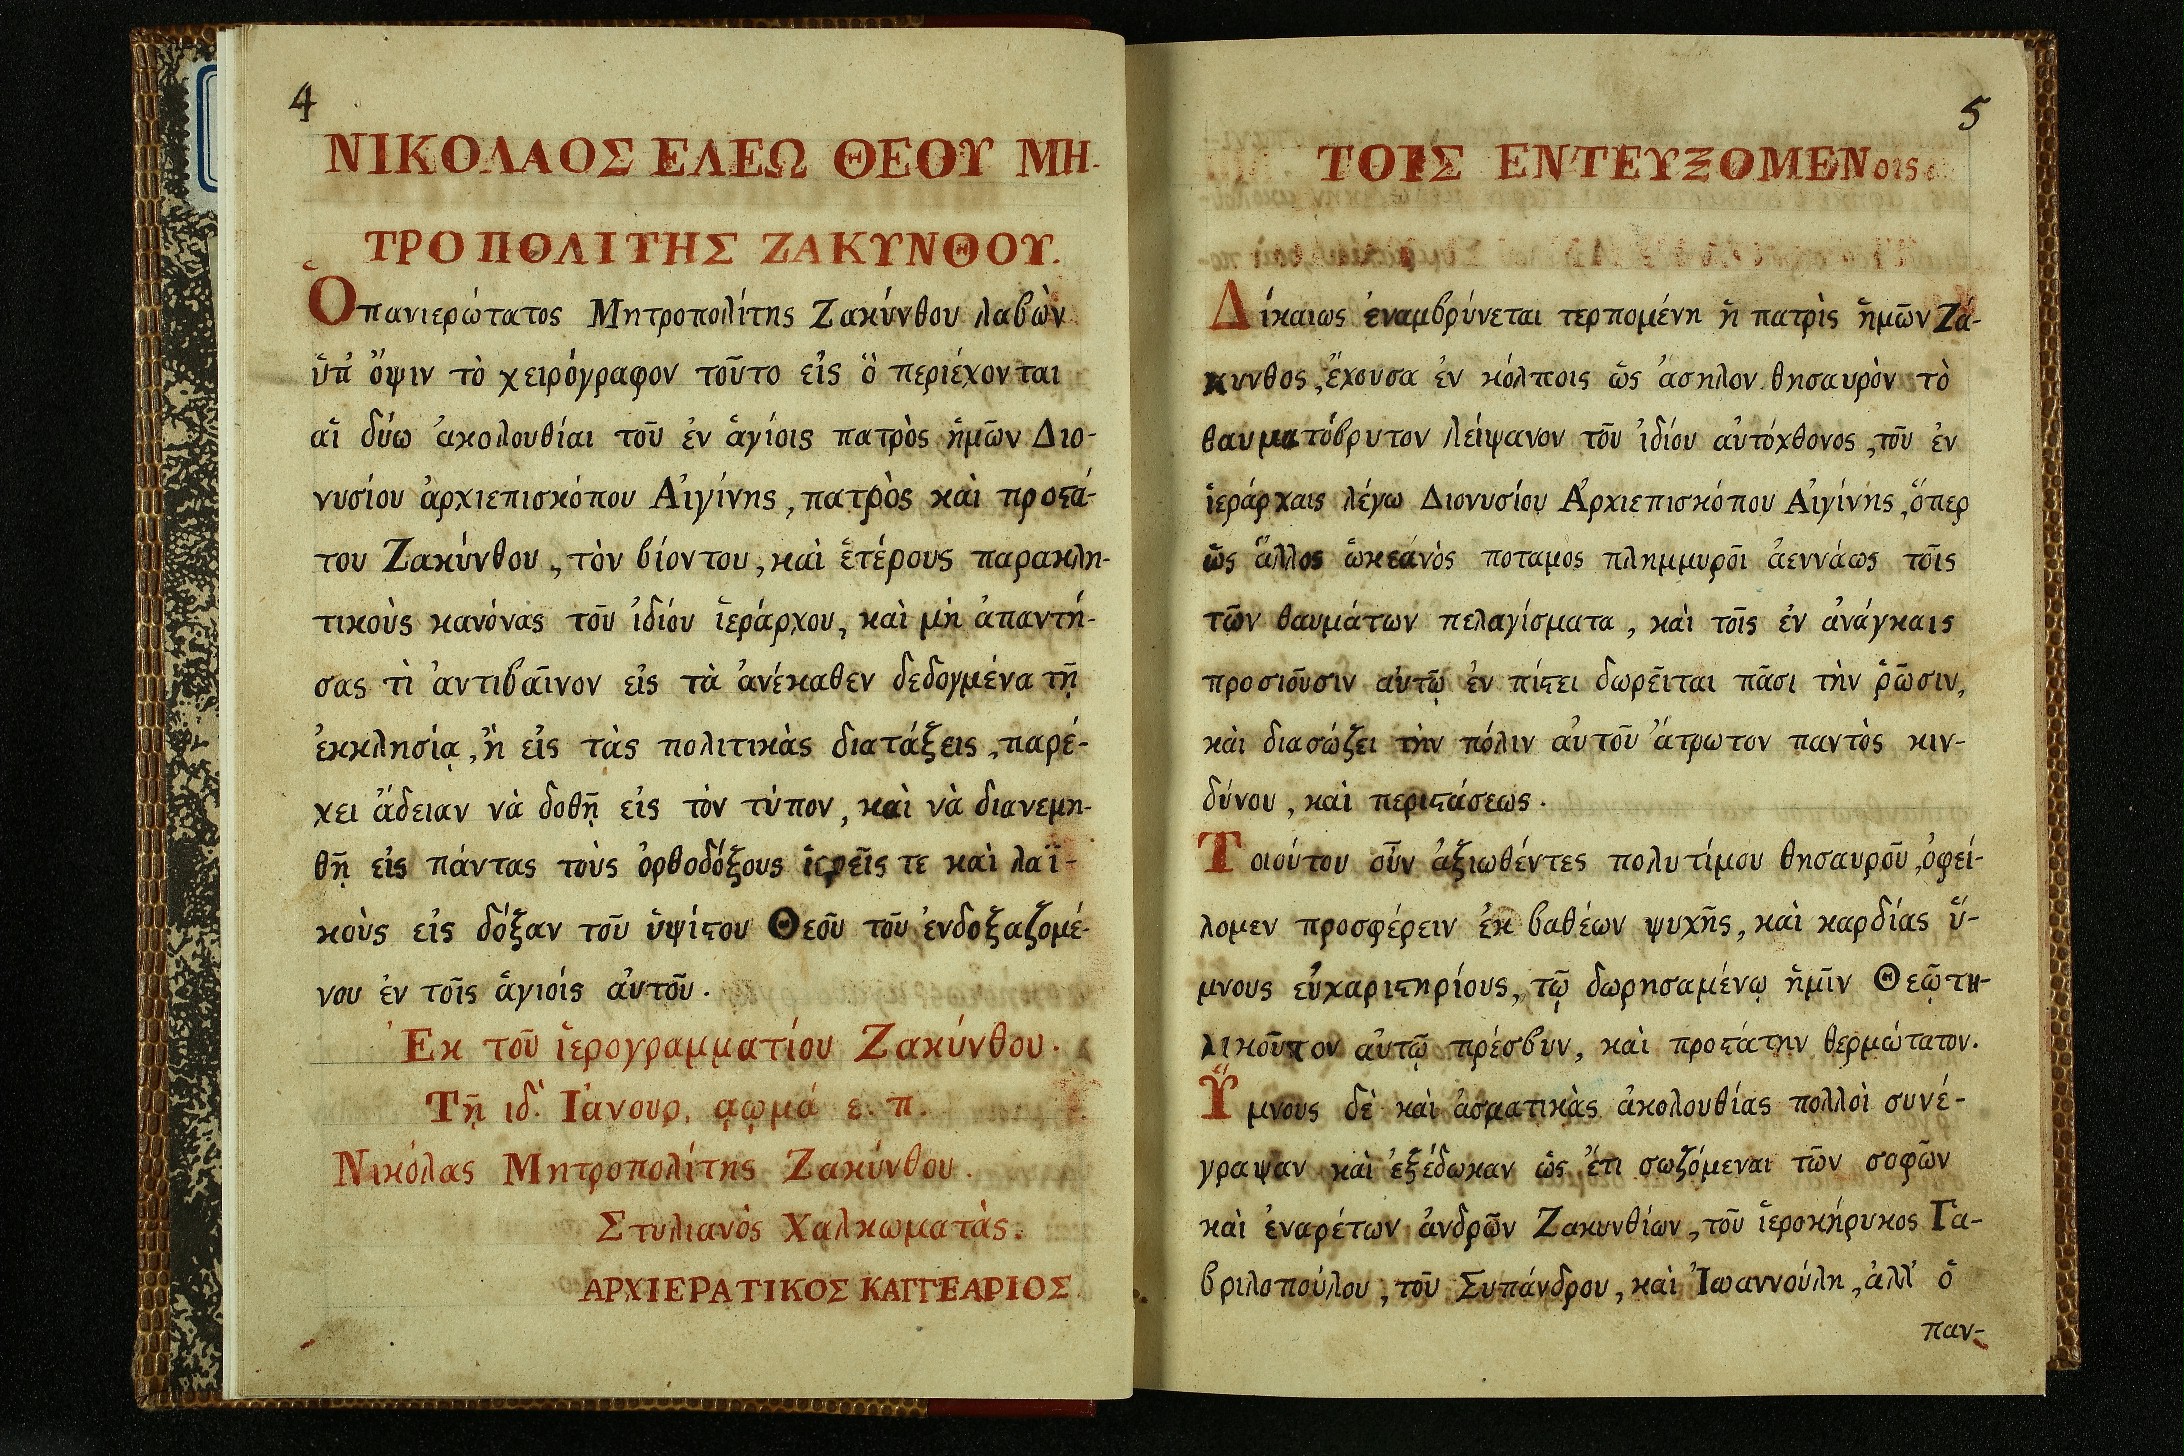 4
ΝΙΚΟΛΑΟΣ ΕΛΕΩ ΘΕΟΥ ΜΗ-
ΤΡΟΠΟΛΙΤΗΣ ΖΑΚΥΝΘΟΥ.
Ὁ πανιερώτατος Μητροπολίτης Ζακύνθου λαβὼν
ὑπ' ὄψιν τὸ χειρόγραφον τοῦτο εἰς ὃ περιέχονται
αἱ δύω ἀκολουθίαι τοῦ ἐν ἁγίοις πατρὸς ἡμῶν Διο-
νυσίου ἀρχιεπισκόπου Αἰγίνης, πατρὸς καὶ προϛά-
του Ζακύνθου, τὸν βίοντου, καὶ ἑτέρους παρακλη-
τικοὺς κανόνας τοῦ ἰδίου ἱεράρχου, καὶ μὴ ἀπαντή-
σας τὶ ἀντιβαῖνον εἰς τὰ ἀνέκαθεν δεδογμένα τῇ
ἐκκλησίᾳ, ἢ εἰς τὰς πολιτικὰς διατάξεις, παρέ-
χει ἄδειαν νὰ δοθῇ εἰς τὸν τύπον, καὶ νὰ διανεμη-
θῇ εἰς πάντας τοὺς ὀρθοδόξους ἱερεῖς τε καὶ λαϊ-
κοὺς εἰς δόξαν τοῦ ὑψίϛου Θεοῦ τοῦ ἐνδοξαζομέ-
νου ἐν τοῖς ἁγίοις ἀυτοῦ.
Ἐκ τοῦ ἱερογραμματίου Ζακύνθου.
Τῇ ιδ'. Ἰάνουρ. αωμά ε. π.
Νικόλας Μητροπολίτης Ζακύνθου.
Στυλιανὸς Χαλκωματὰς.
ΑΡΧΙΕΡΑΤΙΚΟΣ ΚΑΓΓΕΛΑΡΙΟΣ
5
ΤΟΙΣ ΕΝΤΕΥΞΟΜΕΝοις
Δίκαιως ἐναμβρύνεται τερπομένη ἡ πατρὶς ἡμῶν Ζά-
κυνθος, ἔχουσα ἐν κόλποις ὡς ἄσηλον θησαυρὸν τὸ
θαυματόβρυτον λείψανον τοῦ ἰδίου αὐτόχθονος, τοῦ ἐν
ἱεράρχαις λέγω Διονυσίου Ἀρχιεπισκόπου Αἰγίνης, ὅπερ
ὡς ἄλλος ὠκεάνὸς ποταμος πλημμυροῖ ἀεννάως τοῖς
τῶν θαυμάτων πελαγίσματα, καὶ τοῖς ἐν ἀνάγκαις
προσιοῦσιν αὐτῷ ἐν πίϛει δωρεῖται πᾶσι τὴν ῥῶσιν,
καὶ διασώζει τὴν πόλιν αὐτοῦ ἄτρωτον παντὸς κιν-
δύνου, καὶ περιϛάσεως.
Τοιούτου οὖν ἀξιωθέντες πολυτίμου θησαυροῦ, ὀφεί-
λομεν προσφέρειν ἐκ βαθέων ψυχῆς, καὶ καρδίας ὕ-
μνους εὐχαριϛηρίους, τῷ δωρησαμένῳ ἡμῖν Θεῷ τη-
λικοῦτον αὐτῷ πρέσβυν, καὶ προϛάτην θερμώτατον.
Ὕμνους δὲ καὶ ἀσματικὰς ἀκολουθίας πολλοὶ συνέ-
γραψαν καὶ ἐξέδωκαν ὡς ἔτι σωζόμεναι τῶν σοφῶν
καὶ ἐναρέτων ἀνδρῶν Ζακυνθίων, τοῦ ἱεροκήρυκος Γα-
βριλοπούλου, τοῦ Συπάνδρου, καὶ Ἰωαννούλη, ἀλλ' ὁ
παν-